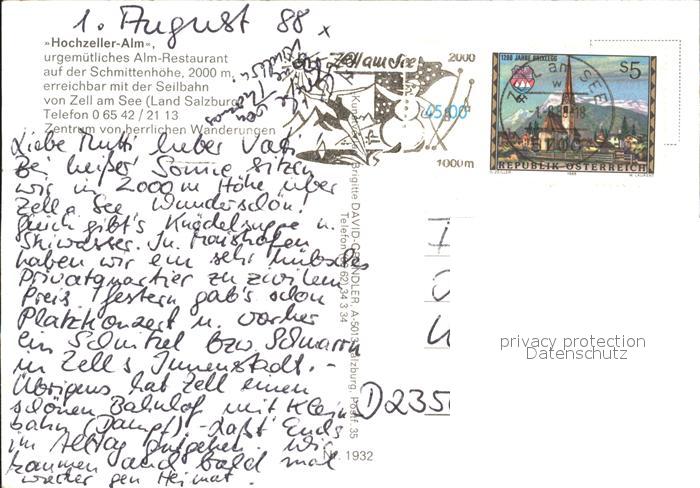 1. August 88
»Hochzeller-Alm«,
urgemütliches Alm-Restaurant
auf der Schmittenhöhe, 2000 m,
erreichbar mit der Seilbahn
von Zell am See (Land Salzburg)
Telefon 0 65 42 / 21 13
Zentrum von herrlichen Wanderungen
Zell am See
2000
1000 m
45,00
1200 JAHRE BRIXLEGG
S5
ZELL am SEE
REPUBLIK ÖSTERREICH
Liebe Mutti lieber Vati!
Bei heißer Sonne sitzen
wir in 2000 m Höhe über
Zell a. See Wunderschön!
Auch gibt's Knödelsuppe u.
Skiwasser. In Maishofen
haben wir ein sehr hübsches
Privatquartier zu zivilem
Preis. Gestern gab's schon
Platzkonzert u. vorher
ein Schnitzel bzw. Schmarrn
in Zell's Innenstadt. -
Übrigens hat Zell einen
schönen Bahnhof mit Klein-
bahn (Dampf) - Laßt Euch's
im Alltag gutgehen. Wir
kommen auch bald mal
wieder gen Heimat.
Brigitte DAVID-GRINDLER, A-5013 Salzburg, Postf. 35
34 3 34
Nr. 1932
D 235
privacy protection
Datenschutz